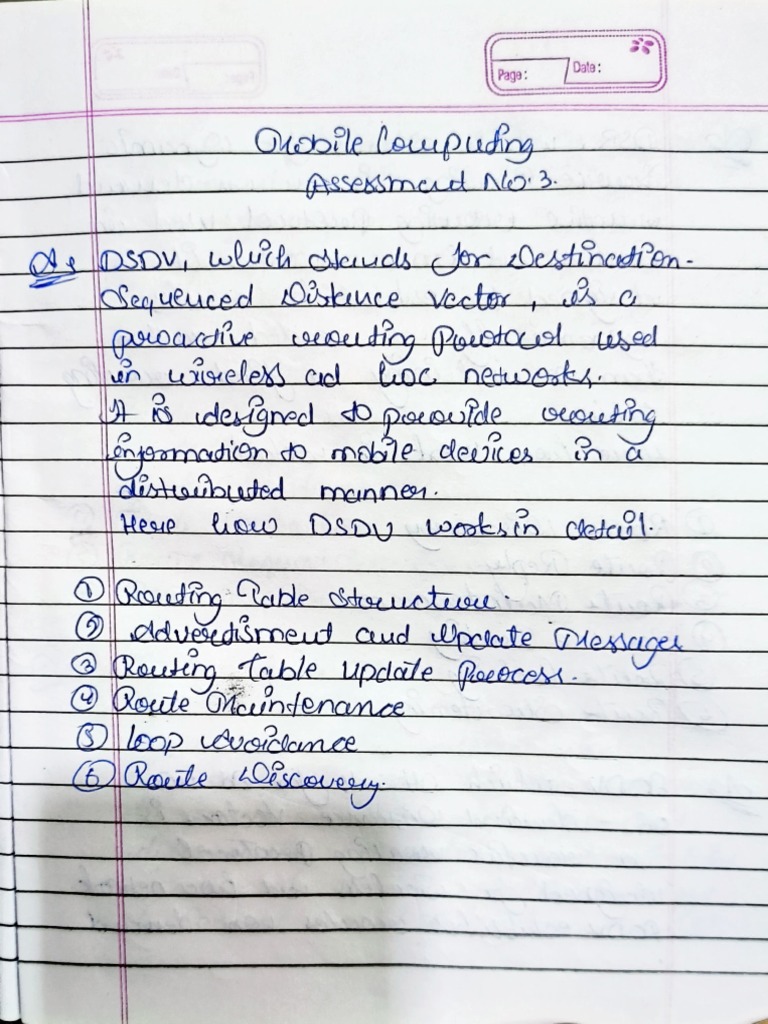 Page:
Date:
Mobile Computing
Assessment No. 3.
A:
DSDV, which stands for Destination-
Sequenced Distance Vector, is a
proactive routing Protocol used
in wireless ad hoc networks.
It is designed to provide routing
information to mobile devices in a
distributed manner.
Here how DSDV works in detail.
① Routing Table Structure.
② Advertisment and Update Messages
③ Routing Table Update Process.
④ Route Maintenance
⑤ Loop Avoidance
⑥ Route Discovery.